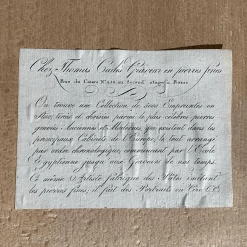 Chez Thomas Cades Graveur en pierres fines
Rue du Cours N.° 456 au second étage à Rome
On trouve une Collection de 3000 Empreintes en
tirés et choisies parmi le plus célebre pierres
gravées Anciennes et Modernes, que existent dans les
principaux Cabinets de l'Europe, le tout arrangé
par ordre chronologique, commencant par l'Ecole
Egyptienne jusqu'aux Graveurs de nos temps.
Ce même Artiste fabrique des Pâtes imitant
les pierres fines, il fait des Portraits en Cire &.